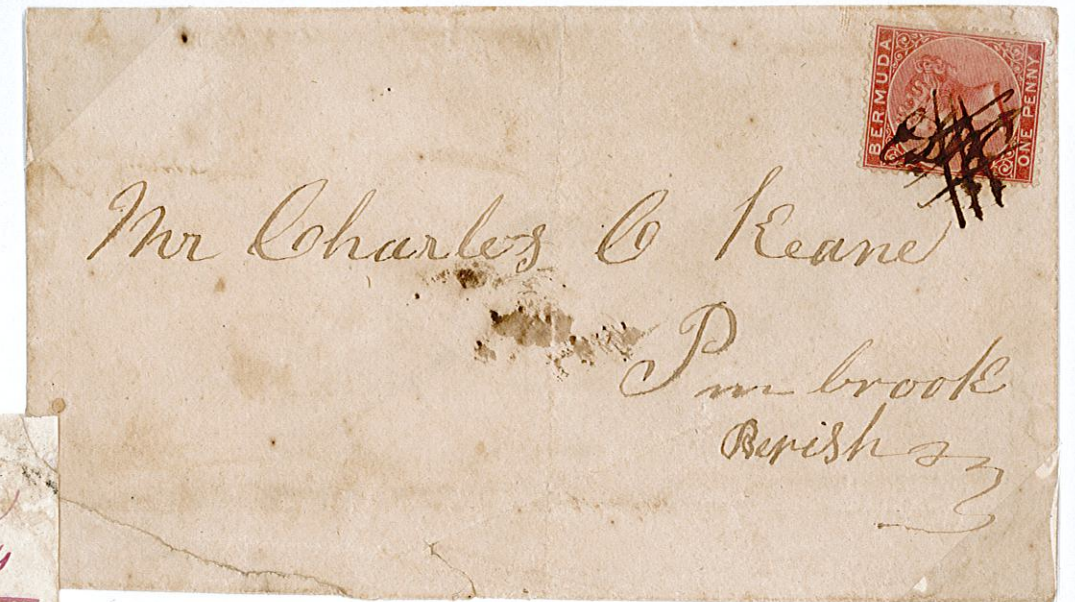 BERMUDA
ONE PENNY
Mr Charles C Keane
Pmbrook
Perish